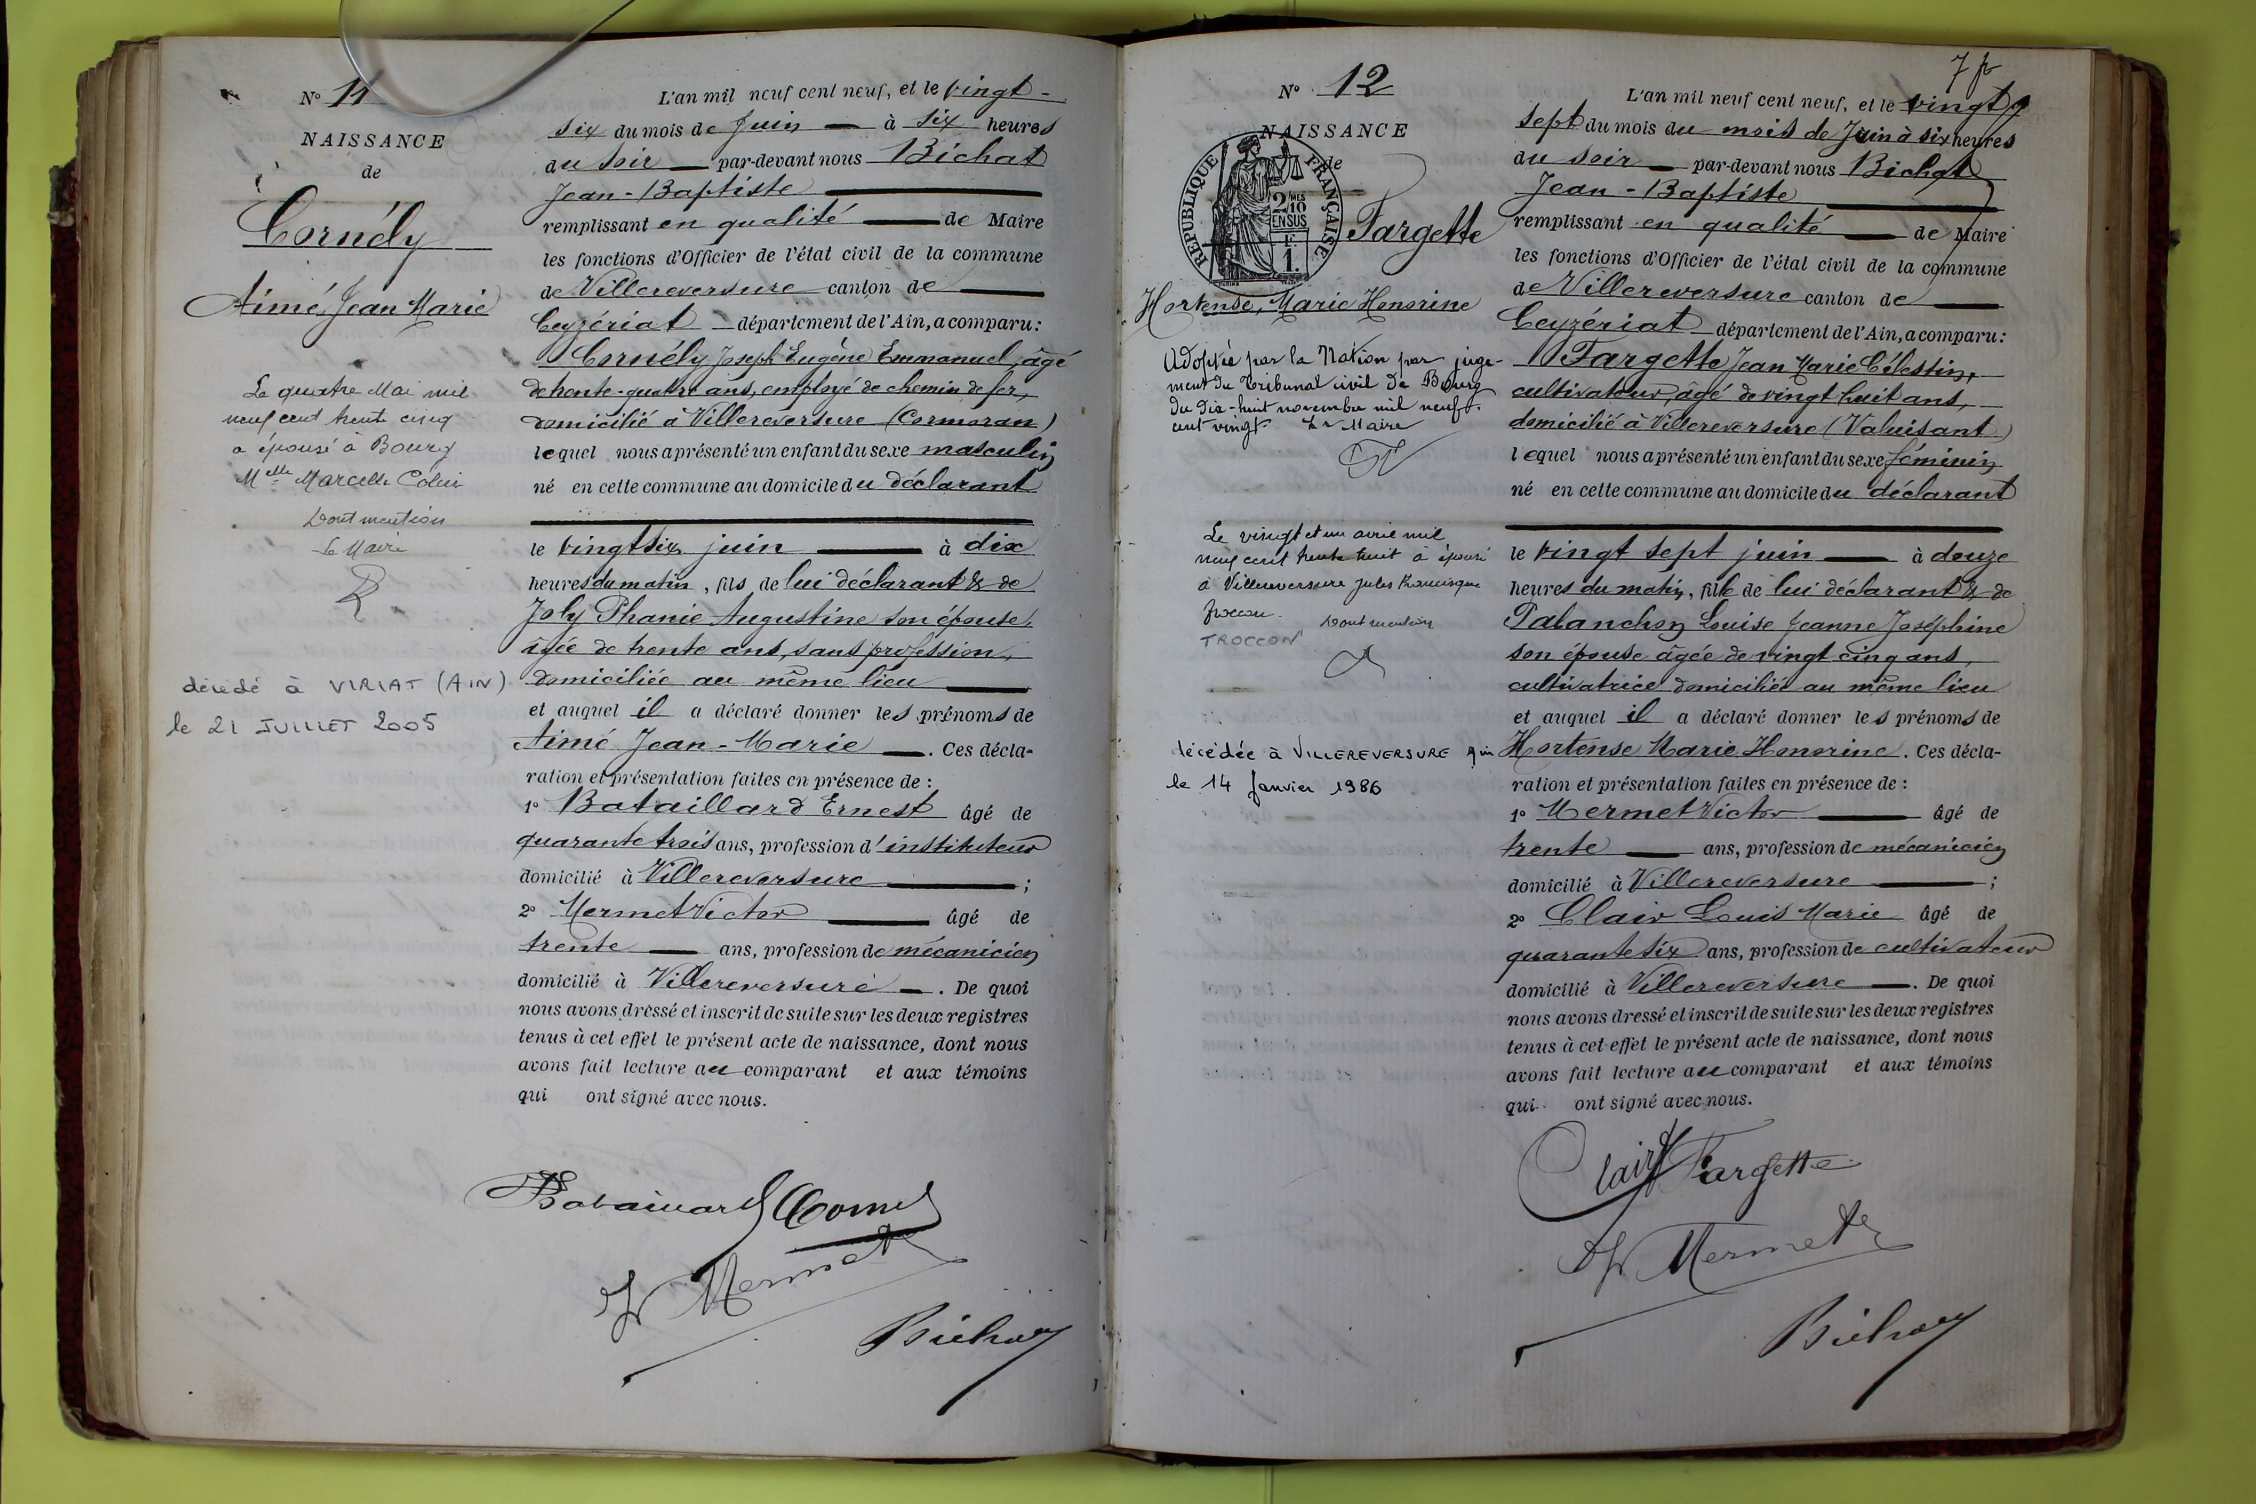 N° 11
NAISSANCE
de
Cornély
Aimé Jean Marie
Le quatre Mai mil
neuf cent trente cinq
a épousé à Bourg
Melle Marcelle
Dont mention
Le Maire
décédé à VIRIAT (AIN)
le 21 JUILLET 2005
L'an mil neuf cent neuf, et le vingt-
six du mois de Juin à six heures
du soir par-devant nous Bichat
Jean-Baptiste
remplissant en qualité de Maire
les fonctions d'Officier de l'état civil de la commune
de Villereversure canton de
Ceyzériat département de l'Ain, a comparu:
Cornély Joseph Eugène Emmanuel, âgé
de trente-quatre ans, employé de chemin de fer,
domicilié à Villereversure (Cormoran)
lequel nous a présenté un enfant du sexe masculin
né en cette commune au domicile du déclarant
le vingt six juin à dix
heures du matin, fils de lui déclarant & de
Joly Phanie Augustine son épouse,
âgée de trente ans, sans profession,
domiciliée au même lieu
et auquel il a déclaré donner les prénoms de
Aimé Jean-Marie. Ces décla-
ration et présentation faites en présence de :
1° Bataillard Ernest âgé de
quarante trois ans, profession d'instituteur
domicilié à Villereversure ;
2° Mermet Victor âgé de
trente ans, profession de mécanicien
domicilié à Villereversure. De quoi
nous avons dressé et inscrit de suite sur les deux registres
tenus à cet effet le présent acte de naissance, dont nous
avons fait lecture au comparant et aux témoins
qui ont signé avec nous.
Bataillard
Mermet
Bichat
7
N° 12
NAISSANCE
de
RÉPUBLIQUE FRANÇAISE
2/10 MES
EN SUS
1 F.
1.
Fargette
Hortense, Marie Honorine
Adoptée par la Nation par juge-
ment du Tribunal civil de Bourg
du dix-huit novembre mil neuf
cent vingt Le Maire
Le vingt et un avril mil
neuf cent trente huit a épousé
à Villereversure Jules Francisque
Troccon. Dont mention
TROCCON
décédée à VILLEREVERSURE Ain
le 14 Janvier 1986
L'an mil neuf cent neuf, et le vingt
sept du mois du mois de Juin à six heures
du soir par-devant nous Bichat
Jean-Baptiste
remplissant en qualité de Maire
les fonctions d'Officier de l'état civil de la commune
de Villereversure canton de
Ceyzériat département de l'Ain, a comparu:
Fargette Jean Marie Célestin,
cultivateur, âgé de vingt huit ans,
domicilié à Villereversure (Valuisant)
lequel nous a présenté un enfant du sexe féminin
né en cette commune au domicile du déclarant
le vingt sept juin à douze
heures du matin, fille de lui déclarant & de
Palanchon Louise Jeanne Joséphine
son épouse âgée de vingt cinq ans,
cultivatrice domiciliée au même lieu
et auquel il a déclaré donner les prénoms de
Hortense Marie Honorine. Ces décla-
ration et présentation faites en présence de :
1° Mermet Victor âgé de
trente ans, profession de mécanicien
domicilié à Villereversure ;
2° Clair Louis Marie âgé de
quarante six ans, profession de cultivateur
domicilié à Villereversure. De quoi
nous avons dressé et inscrit de suite sur les deux registres
tenus à cet effet le présent acte de naissance, dont nous
avons fait lecture au comparant et aux témoins
qui ont signé avec nous.
Clair Fargette
Mermet
Bichat